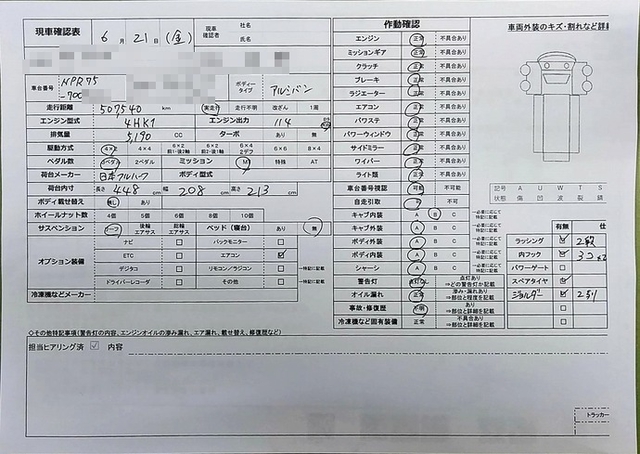 現車確認表
6月 21日 (金)
現車確認者 社名
氏名
車台番号 NPR75
-700
ボディータイプ アルミバン
走行距離 507540 km 実走行 走行不明 改ざん 1周
エンジン型式 4HK1 エンジン出力 114
排気量 5,190 CC ターボ あり 無
駆動方式 4×2 4×4 6×2 前1・後2軸 6×2 前2・後1軸 6×4 2デフ 6×6 8×4
ペダル数 3ペダル 2ペダル ミッション M 特殊 AT
荷台メーカー 日本フルハーフ ボディ型式
荷台内寸 長さ 448 cm 幅 208 cm 高さ 213 cm
ボディ載せ替え 無し あり
ホイールナット数 4個 5個 6個 8個 10個
サスペンション リーフ 後輪エアサス 総輪エアサス ベッド(寝台) あり 無
オプション装備
ナビ バックモニター
ETC エアコン
デジタコ リモコン/ラジコン →特記に記載
ドライブレコーダ その他 →特記に記載
冷凍機などメーカー
◇その他特記事項(警告灯の内容、エンジンオイルの滲み漏れ、エア漏れ、載せ替え、修復歴など)
担当ヒアリング済 内容
動作確認
エンジン 正常 不具合あり
ミッションギア 正常 不具合あり
クラッチ 正常 不具合あり
ブレーキ 正常 不具合あり
ラジエーター 正常 不具合あり
エアコン 正常 不具合あり
パワステ 正常 不具合あり
パワーウィンドウ 正常 不具合あり
サイドミラー 正常 不具合あり
ワイパー 正常 不具合あり
ライト類 正常 不具合あり
車台番号確認 可能 不可能
自走引取 可 不可
キャブ内装 A B C →必要に応じて特記に記載
キャブ外装 A B C →必要に応じて特記に記載
ボディ外装 A B C →必要に応じて特記に記載
ボディ内装 A B C →必要に応じて特記に記載
シャーシ A B C →必要に応じて特記に記載
警告灯 点灯なし 点灯あり →どの警告灯か記載
オイル漏れ 正常 滲み・漏れあり →部位と程度を記載
事故・修復歴 不明 あり →部位と詳細を記載
冷凍機など固有装備 正常 不具合あり →部位と詳細を記載
車両外装のキズ・割れなど詳細
記号 A U W T S
状態 傷 凹 波 裂 錆
有無 仕
ラッシング 2段
内フック 3コ×2
パワーゲート
スペアタイヤ
ジョルダー 2列
トラッカー